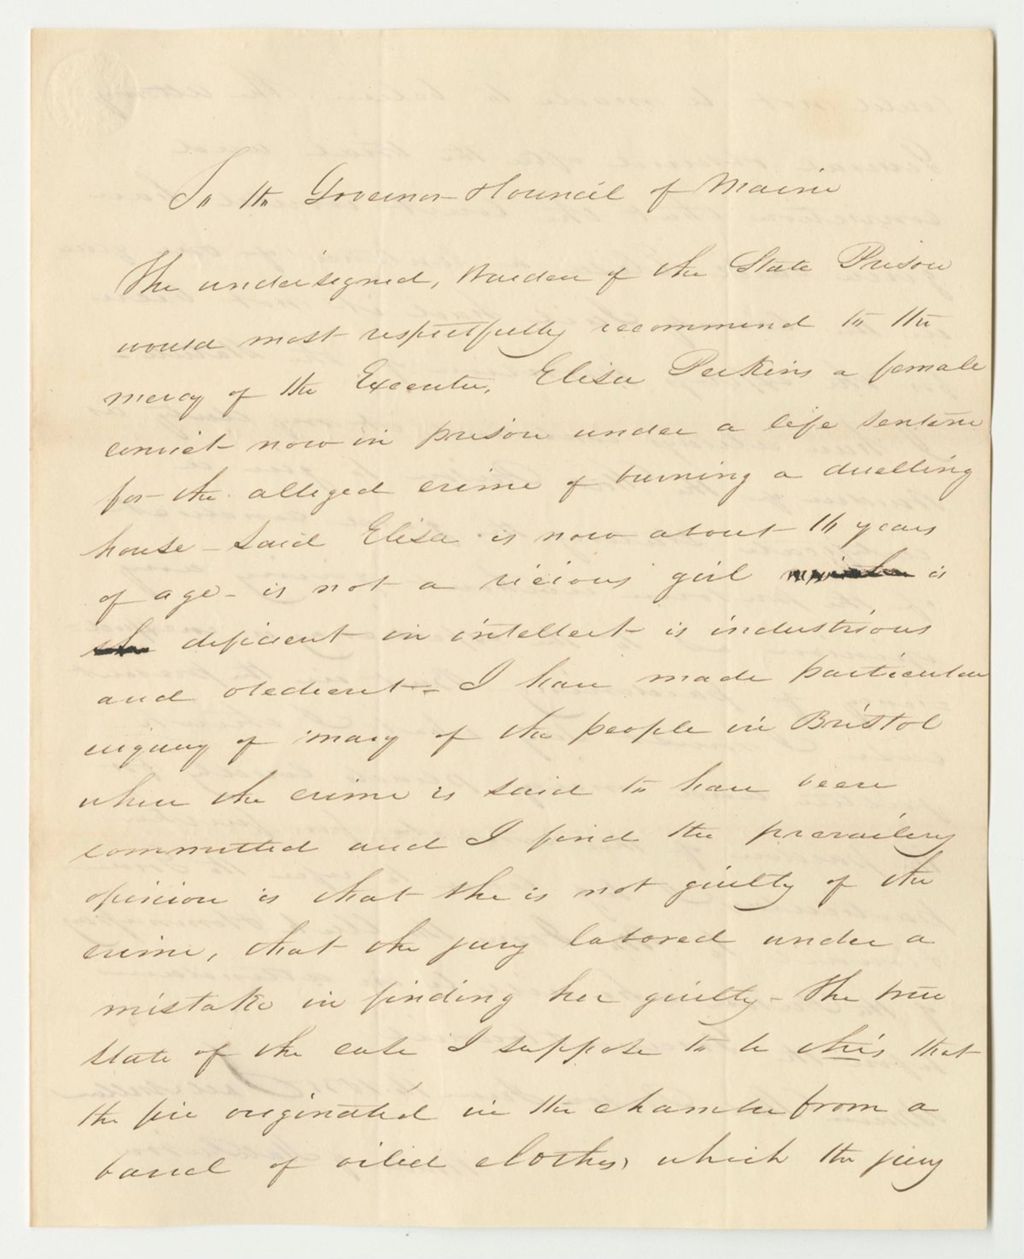 To the Governor & Council of Maine
The undersigned, Warden of the State Prison
would most respectfully recommend to the
mercy of the Executive, Elisa Perkins a female
convict now in prison under a life sentence
for the alleged crime of burning a dwelling
house - Said Elisa is now about years
of age - is not a vicious girl is
deficient in intellect is industrious
and obedient - I have made particular
inquiry of many of the people in Bristol
where the crime is said to have been
committed and I find the prevailing
opinion is that she is not guilty of the
crime, that the jury labored under a
mistake in finding her guilty - The true
state of the case I suppose to be this that
the fire originated in the chamber from a
barrel of oiled clothes, which the jury